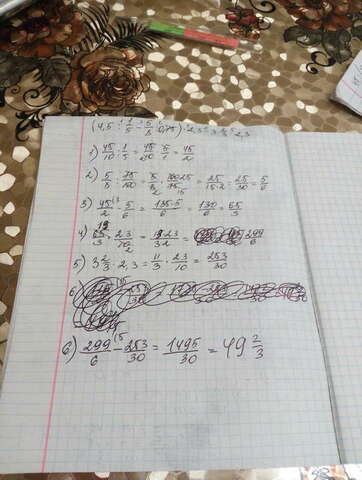 (4,5 : 1/5 - 5/8 : 0,75) · 2,3 - 3 2/3 · 2,3
1) 45/10 : 1/5 = 45/10 · 5/1 = 45/2
2) 5/8 : 75/100 = 5/8 · 100/75 = 25/15·2 = 25/30 = 5/6
3) 45/2 - 5/6 = 135-5/6 = 130/6 = 65/3
4) 65/3 · 23/10 = 13·23/3·2 = 299/6
5) 3 2/3 · 2,3 = 11/3 · 23/10 = 253/30
6)
6) 299/6 - 253/30 = 1495/30 = 49 2/3